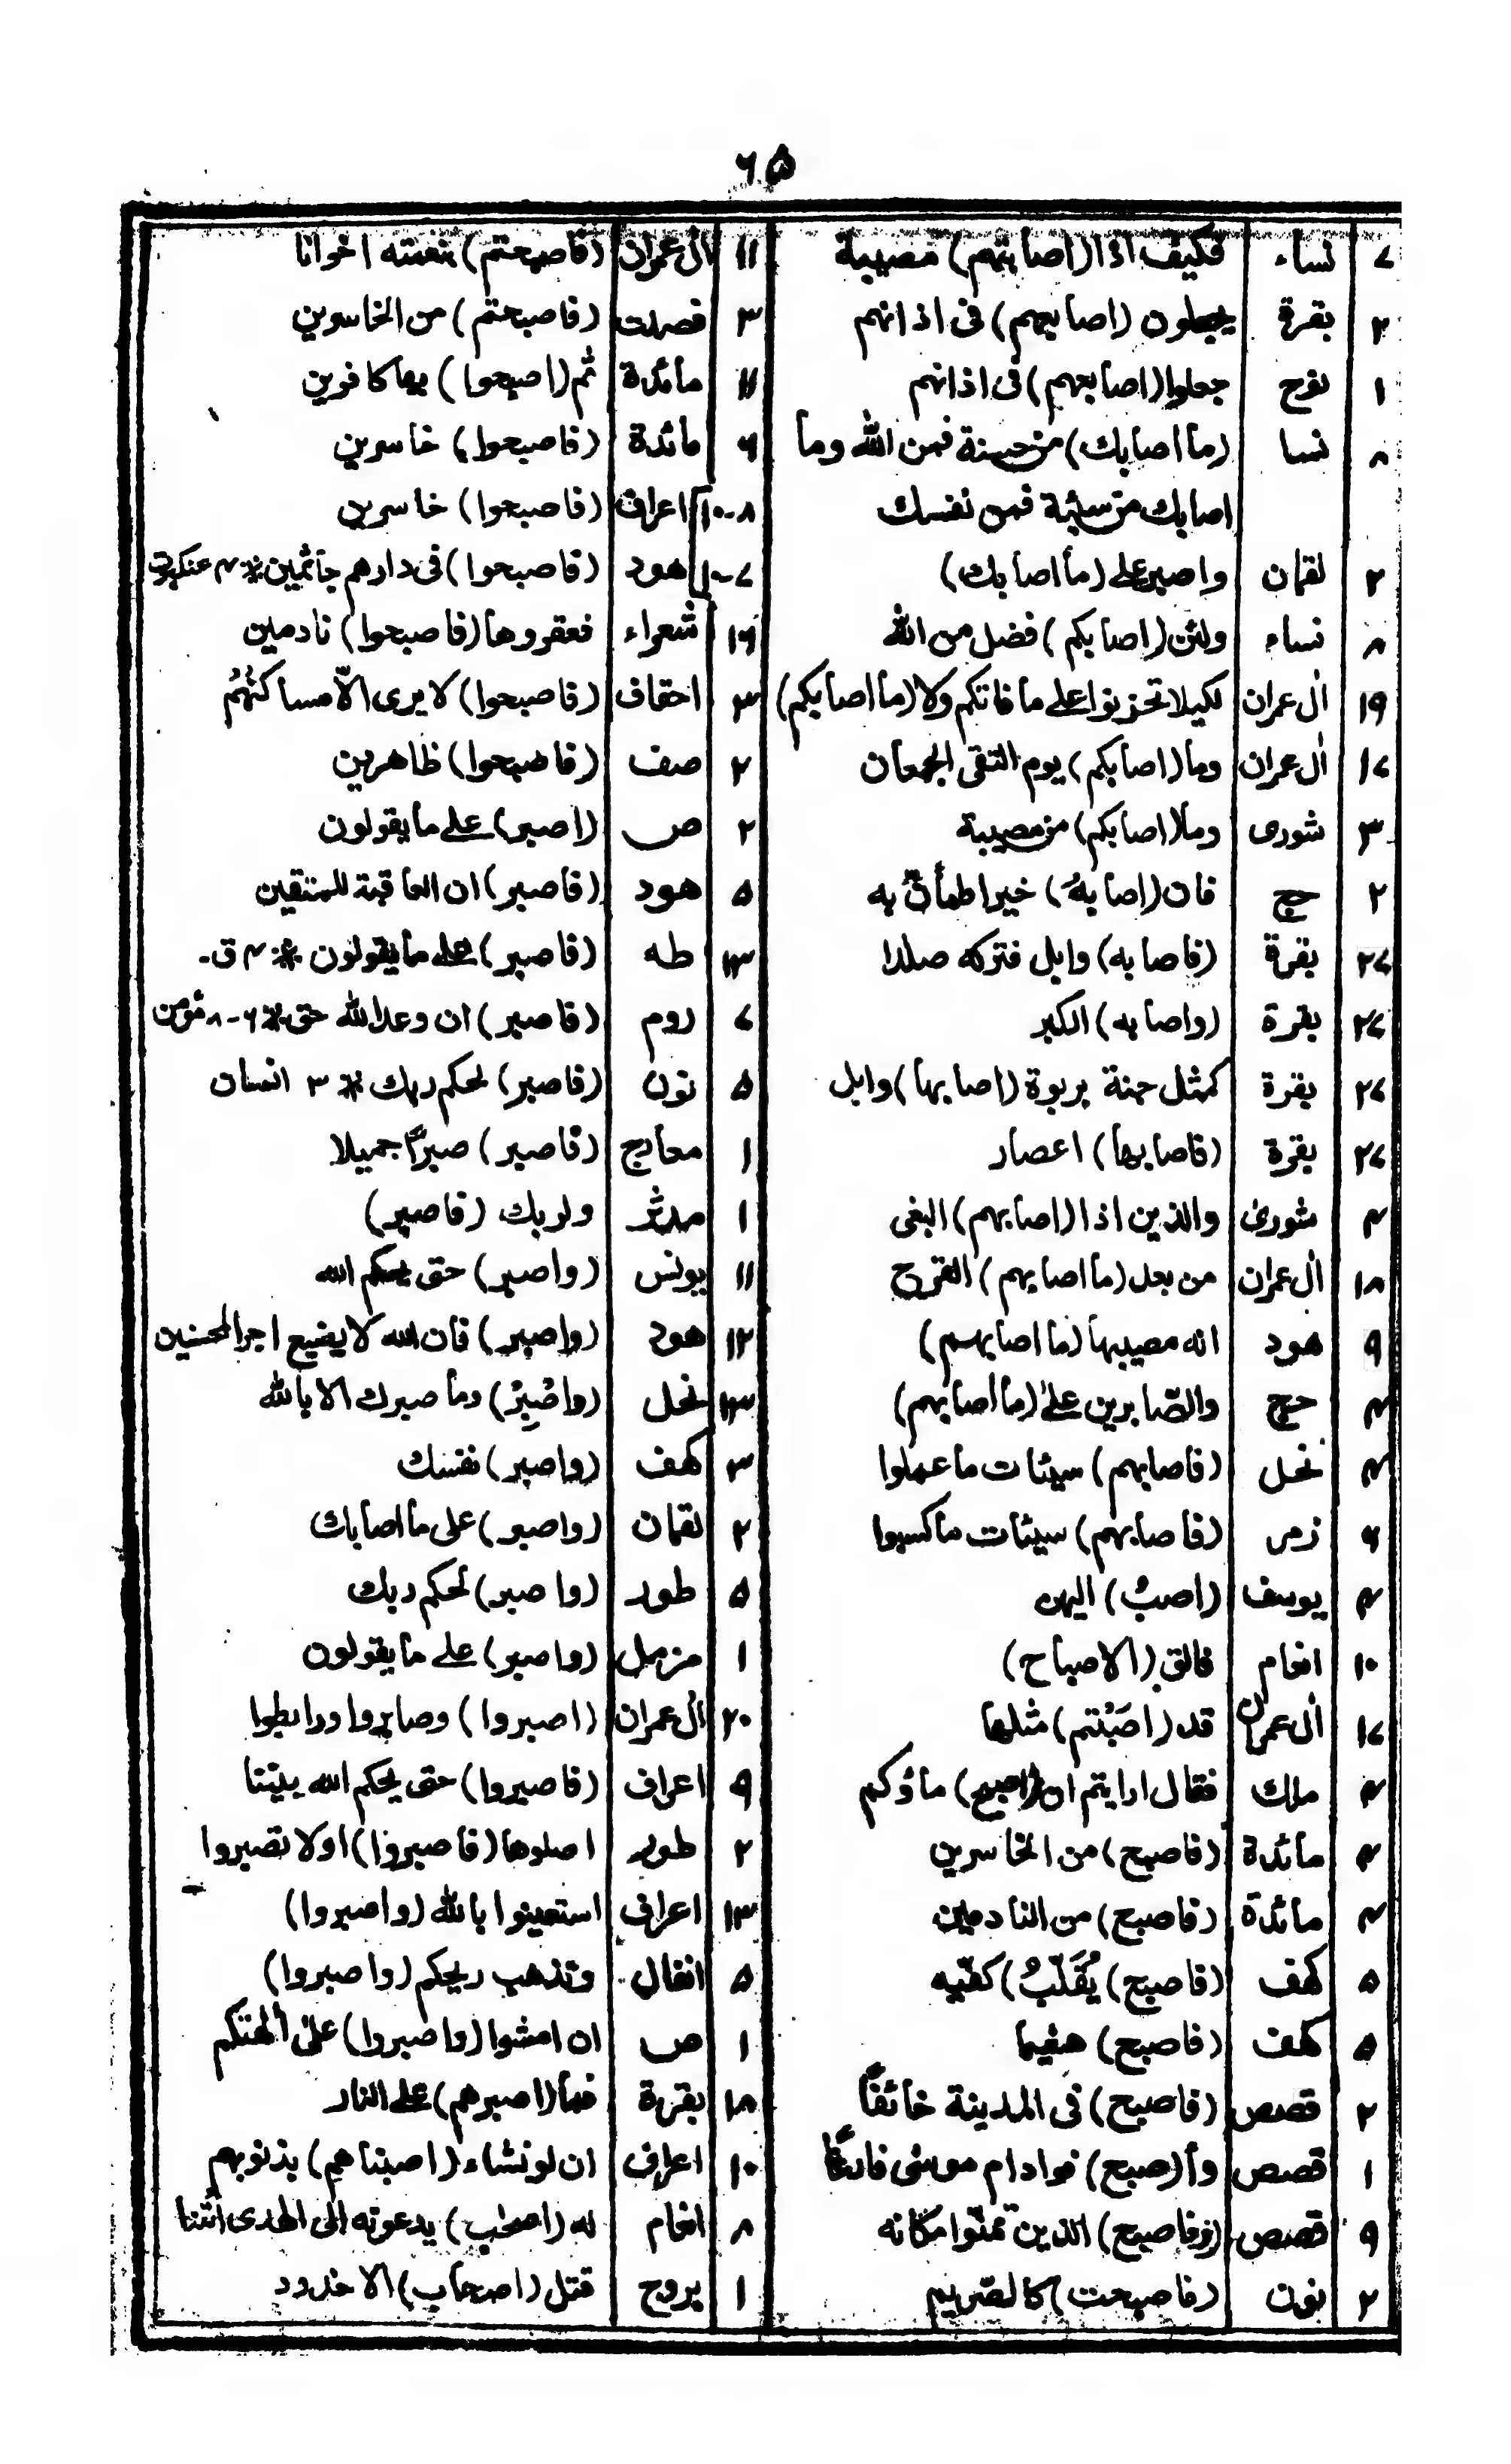 ۶۵
۷ نساء فکیف اذا (اصابتهم) مصیبة
۲ بقرة یجعلون (اصابعهم) فی اذانهم
۱ نوح جعلوا (اصابعهم) فی اذانهم
۸ نسا (ما اصابك) من حسنة فمن الله وما
اصابك من سیئة فمن نفسك
۲ لقمان واصبر علی (ما اصابك)
۸ نساء ولئن (اصابکم) فضل من الله
۱۹ اٰل عمران لکیلا تحزنوا علی ما فاتکم ولا (ما اصابکم)
۱۷ اٰل عمران وما (اصابکم) یوم التقی الجمعان
۳ شوری وما (اصابکم) من مصیبة
۲ حج فان (اصابهٗ) خیرا طمأنّ به
۲۷ بقرة (فاصابه) وابل فترکه صلدا
۲۷ بقرة (واصابه) الکبر
۲۷ بقرة کمثل جنة بربوة (اصابها) وابل
۲۷ بقرة (فاصابها) اعصار
۴ شوریٰ والذین اذا (اصابهم) البغی
۱۸ اٰل عمران من بعد (ما اصابهم) القرح
۹ هود انه مصیبها (ما اصابهم)
۴ حج والصّابرین علیٰ (ما اصابهم)
۴ نحل (فاصابهم) سیئات ما عملوا
۶ زمر (فاصابهم) سیئات ما کسبوا
۴ یوسف (اصبُ) الیهن
۱۰ انعام فالق (الاصباح)
۱۷ اٰل عمران قد (اصَبْتم) مثلها
۴ ملك فقال ارایتم ان (اصبح) ماؤکم
۴ مائدة (فاصبح) من الخاسرین
۴ مائدة (فاصبح) من النادمین
۵ کهف (فاصبح) یُقَلّبُ) کفّیه
۵ کهف (فاصبح) هشیما
۲ قصص (فاصبح) فی المدینة خائفًا
۱ قصص وا (صبح) فواد ام موسٰی فارغًا
۹ قصص (وفاصبح) الذین تمنّوا مکانه
۲ نون (فاصبحت) کالصّریم
۱۱ اٰل عمران (فاصبحتم) بنعمته اخوانا
۳ فصلت (فاصبحتم) من الخاسرین
۱۱ مائدة ثم (اصبحوا) بها کافرین
۶ مائدة (فاصبحوا) خاسرین
۸-۱۰ اعراف (فاصبحوا) خاسرین
۷-۱۰ هود (فاصبحوا) فی دارهم جاثمین * ۴ عنکبوت
۱۶ شعراء فعقروها (فاصبحوا) نادمین
۳ احقاف (فاصبحوا) لا یری الّا مساکنُهُم
۲ صف (فاصبحوا) ظاهرین
۲ ص (اصبر) علی ما یقولون
۵ هود (فاصبر) ان العاقبة للمتقین
۱۳ طه (فاصبر) علی ما یقولون * ۴ ق-
۷ روم (فاصبر) ان وعد الله حق * ۶-۸ مؤمن
۵ نون (فاصبر) لحکم ربك * ۳ انسان
۱ معارج (فاصبر) صبرًا جمیلا
۱ مدثر ولربك (فاصبر)
۱۱ یونس (واصبر) حتی یحکم الله
۱۲ هود (واصبر) فان الله لا یضیع اجر المحسنین
۱۳ نحل (واصْبِرْ) وما صبرك الا بالله
۳ کهف (واصبر) نفسك
۲ لقمان (واصبر) علی ما اصابك
۵ طور (واصبر) لحکم ربك
۱ مزمل (واصبر) علی ما یقولون
۲۰ اٰل عمران (اصبروا) وصابروا ورابطوا
۹ اعراف (فاصبروا) حتی یحکم الله بیننا
۲ طور اصلوها (فاصبروا) او لا تصبروا
۱۳ اعراف استعینوا بالله (واصبروا)
۵ انفال وتذهب ریحکم (واصبروا)
۱ ص ان امشوا (واصبروا) علیٰ اٰلهتکم
۱۸ بقرة فما (اصبرهم) علی النار
۱۰ اعراف ان لو نشاء (اصبناهم) بذنوبهم
۸ انعام له (اصحٰب) یدعونه الی الهدی ائتنا
۱ بروج قتل (اصحاب) الاخدود